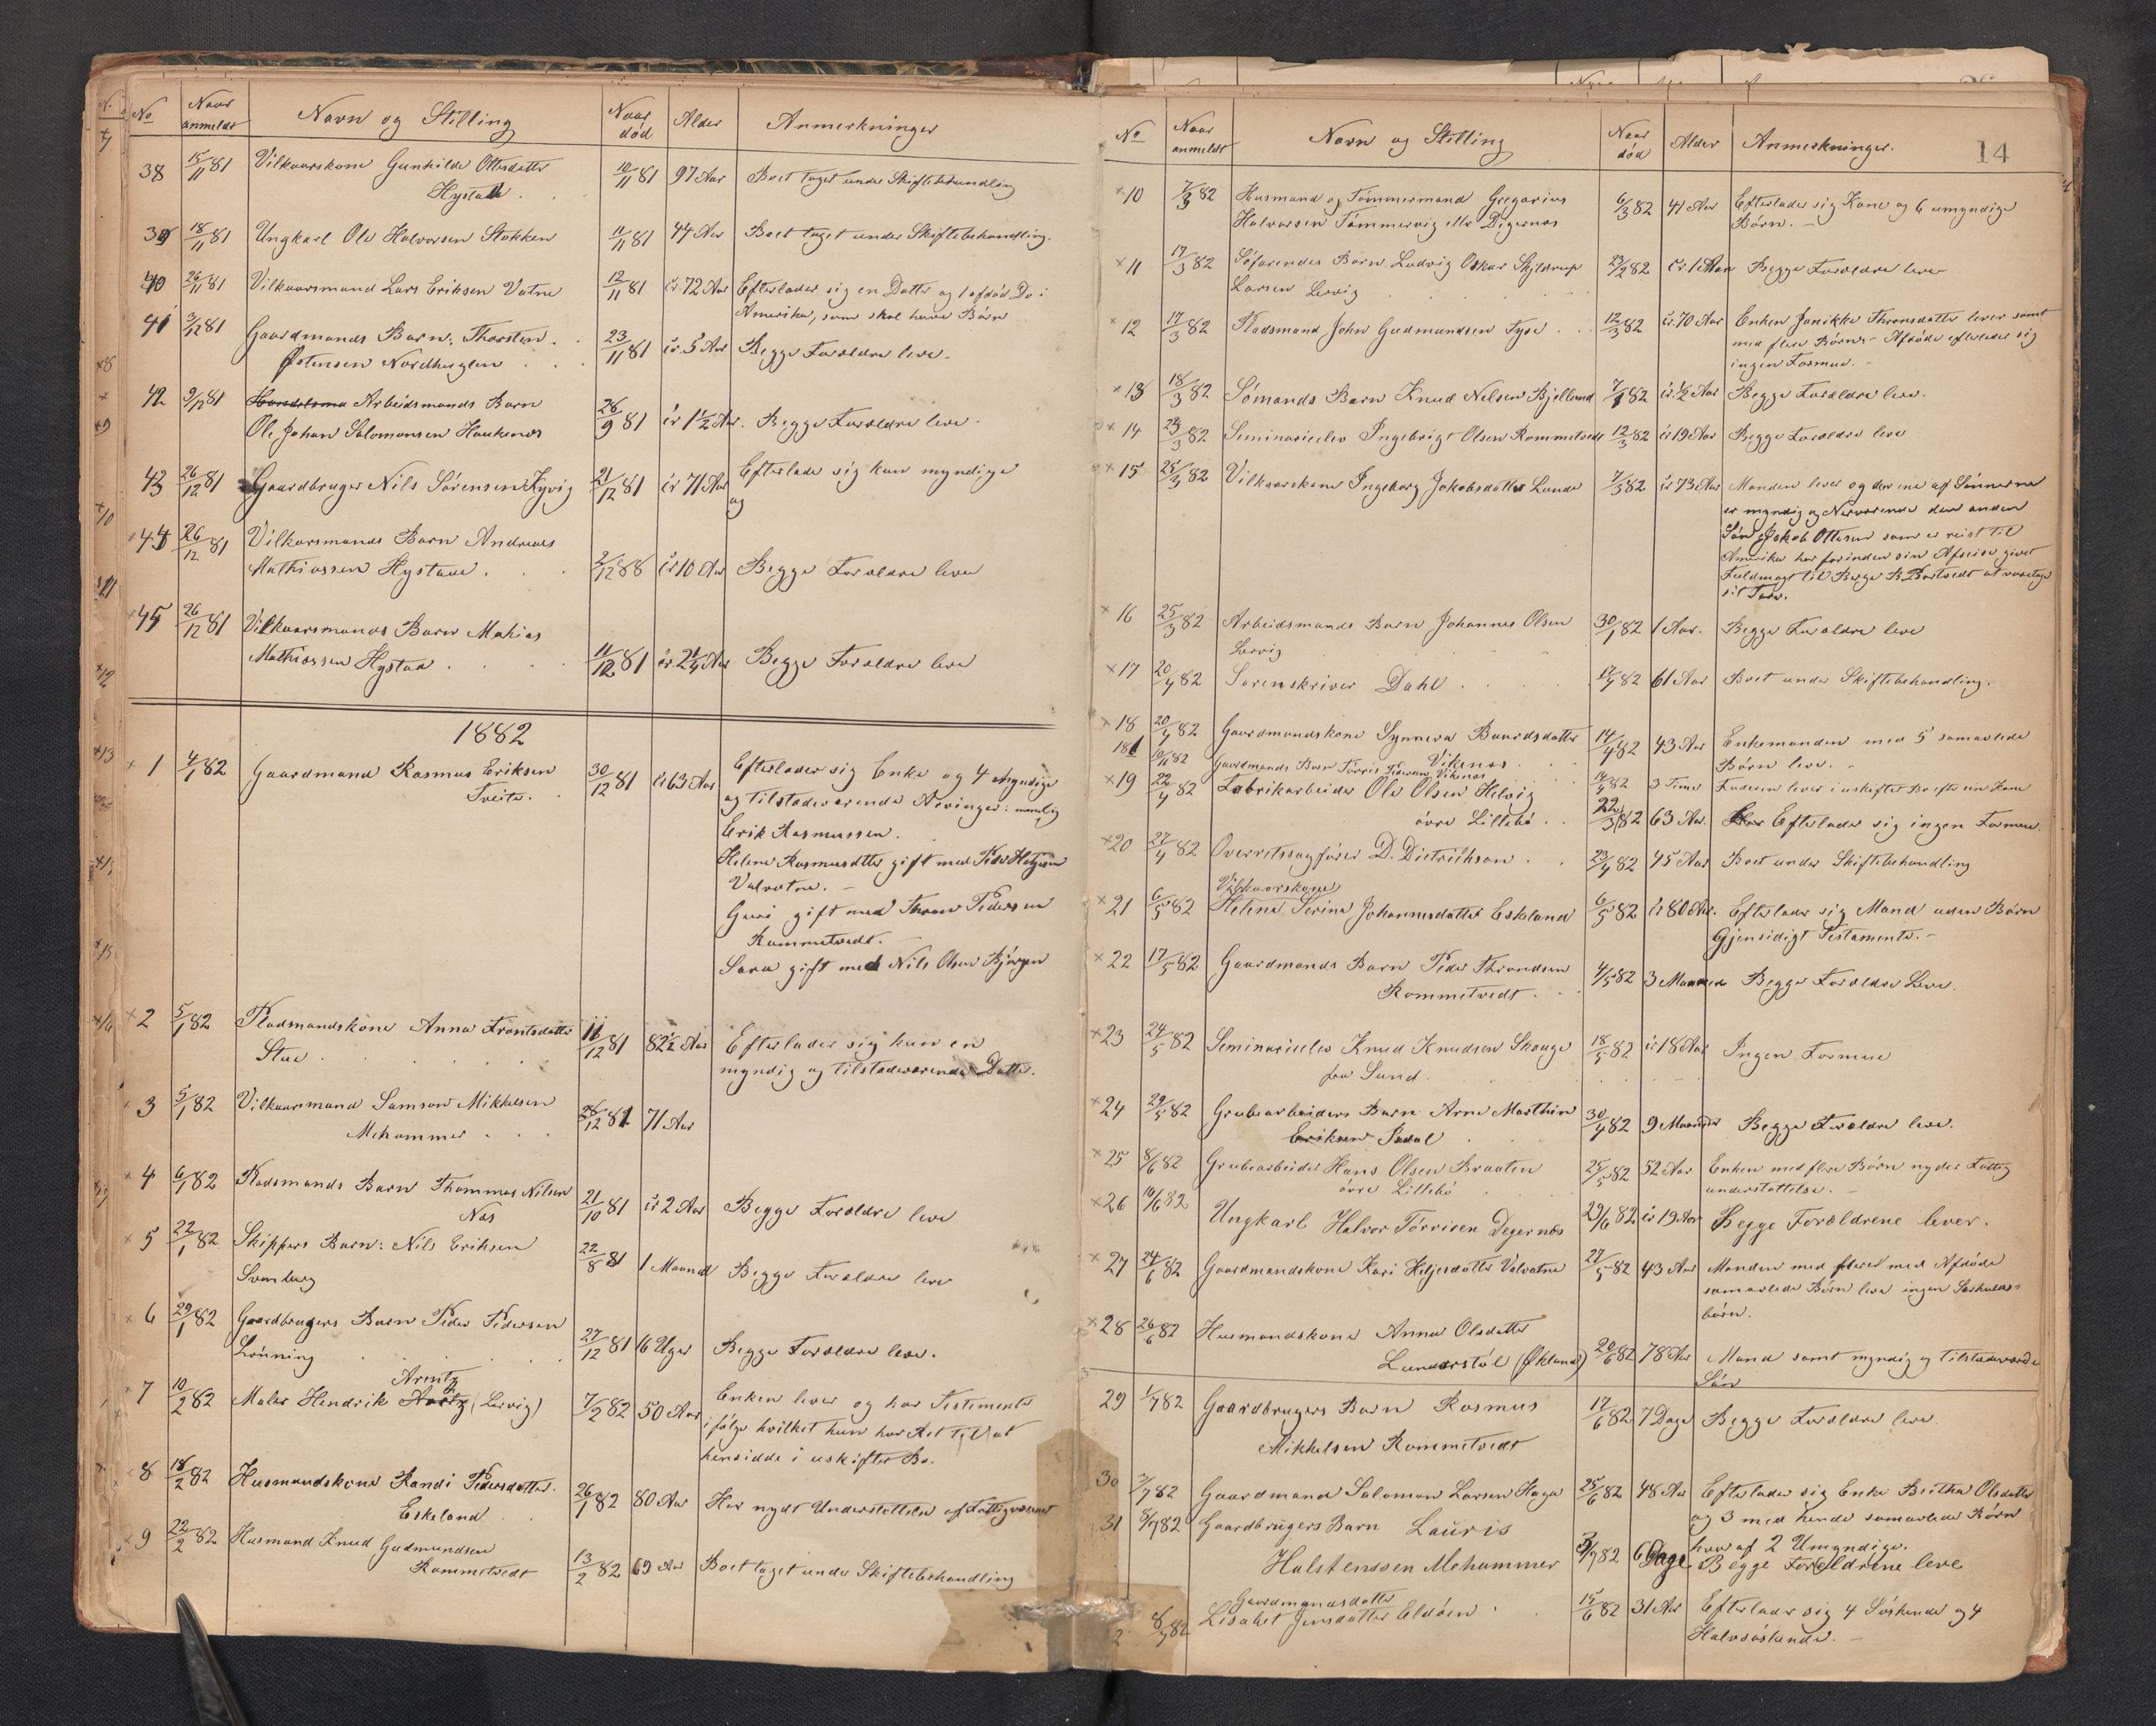 No
Naar anmeldt
Navn og Stilling
Naar død
Alder
Anmerkninger
38 15/11 81 Vilkaarskone Gunhilde Ottersdatter 10/11 81 97 Aar Boet taget under Skiftebehandling
Hystad
39 18/11 81 Ungkarl Ole Halvorsen Stokken 11/11 81 44 Aar Boet taget under Skiftebehandling.
40 26/11 81 Vilkaarsmand Lars Eriksen Vatne 12/11 81 ir 72 Aar Efterlader sig en Datter og 1 afdød Do i
Amerika, som skal have Børn
41 3/12 81 Gaardmands Barn: Thorsten
Østensen Nordhuglen 23/11 81 ir 5 Aar Begge Forældre leve.
42 9/12 81 Handelsma Arbeidsmands Barn
Ole Johan Salomonsen Haukenæs 28/9 81 ir 1½ Aar. Begge Forældre leve.
43 26/12 81 Gaardbruger Nils Sørensen Kyvig 21/12 81 ir 71 Aar Efterlader sig kun myndige
og
44 26/12 81 Vilkarsmands Barn Andreas
Mathiassen Hystad 2/12 88 ir 10 Aar Begge Forældre leve
45 26/12 81 Vilkaarsmands Barn Mathias
Mathiassen Hystad 11/12 81 ir 2¼ Aar Begge Forældre leve
1882
1 4/1 82 Gaardmand Rasmus Eriksen
Tveite. 30/12 81 ir 63 Aar Efterlader sig Enke og 4 myndige
og tilstedeværende Arvinger: nemlig
Erik Rasmussen.
Helene Rasmusdatter gift med Peder Helgesen
Valvatne.
Guri gift med Thron Pedersen
Rommetvedt.
Sara gift med Nils Olsen Bjørgen
2 5/1 82 Pladsmandskone Anna Frantsdatter
Stue 11/12 81 82½ Aar Efterlader sig kun en
myndig og tilstedeværende Datter.
3 5/1 82 Vilkaarsmand Samson Mikkelsen
Mehammer 28/12 81 71 Aar
4 6/1 82 Pladsmands Barn Thommas Nilsen
Næs 21/10 81 ir 2 Aar Begge Forældre leve
5 22/1 82 Skippers Barn: Nils Eriksen
Svenberg 22/8 81 1 Maaned Begge Forældre leve
6 29/1 82 Gaardbrugers Barn Peder Pedersen
Lønning 27/12 81 6 Uger Begge Forældre leve.
Arentz
7 10/2 82 Maler Hendrik (Lervig) 7/2 82 50 Aar Enken lever og har Testemente
ifølge hvilket hun har Ret til at
hensidde i uskiftet Bo.
8 18/2 82 Husmandskone Randi Pedersdatter
Eskeland 26/1 82 80 Aar Har nydt Understøttelse af Fattigvæsenet
9 22/2 82 Husmand Knud Gudmundsen
Rommetvedt 13/2 82 69 Aar Boet taget under Skiftebehandling
14
No
Naar anmeldt
Navn og Stilling
Naar død
Alder
Anmerkninger.
10 7/3 82 Husmand og Tømmermand Gregorius
Halvorsen Tømmervig eller Digernæs 6/3 82 41 Aar Efterlader sig Kone og 6 umyndige
Børn.
11 17/3 82 Søfarendes Barn Ludvig Oskar Skjeldrup
Larsen Lervig 23/2 82 ir 1 Aar Begge Forældre leve
12 17/3 82 Pladsmand John Gudmundsen Tyse 12/3 82 ir 70 Aar Enken Janikke Thronsdatter lever samt
med flere Børn. Afdøde efterlader sig
ingen Formue.
13 18/3 82 Sømands Barn Knud Nelsen Bjelland 7/1 82 ir ½ Aar Begge Forældre leve.
14 23/3 82 Seminarieelev Ingebrigt Olsen Rommetvedt 12/3 82 ir 19 Aar Begge Forældre leve
15 25/3 82 Vilkaarskone Ingeborg Jakobsdatter Lunde 7/3 82 ir 73 Aar Manden lever og den ene af Sønnerne
er myndig og Nærværende den anden
Søn Jakob Ottesen som er reist til
Amerika har forinden sin Afreise givet
Fuldmagt til Børge B. Bortvedt at varetage
sit Tarv.
16 25/3 82 Arbeidsmands Barn Johannes Olsen
Lervig 30/1 82 1 Aar. Begge Forældre leve
17 20/4 82 Sorenskriver Dahl 12/4 82 61 Aar Boet under Skiftebehandling.
18 20/4 82 Gaardmandskone Synneva Baardsdatter
Vikenæs 14/4 82 43 Aar Enkemanden med 5 samavlede
Børn leve.
18½ 10/11 82 Gaardmands Barn Torris Vikenæs 14/4 82 3 Timer Faderen lever i uskiftet Bo efter sin Kone
19 22/4 82 Fabrikarbeider Ole Olsen Helvig
øvre Lillebø 22/3 82 63 Aar. Efterlader sig ingen Formue.
20 27/4 82 Overretssagfører D. Dietrichson 23/4 82 45 Aar Boet under Skiftebehandling
Vilkaarskone
21 6/5 82 Helena Serine Johannesdatter Eskland 6/5 82 ir 80 Aar. Efterlader sig Mand uden Børn
Gjensidigt Testamente.
22 17/5 82 Gaardmands Barn Peder Throndsen
Rommetvedt 4/5 82 3 Maaneder Begge Forældre Leve.
23 24/5 82 Seminarieelev Knud Knudsen Skouge
fra Sund 18/5 82 ir 18 Aar Ingen Formue
24 29/5 82 Grubearbeiders Barn Arne Marthin
Eriksen Indal 30/4 82 9 Maaneder Begge Forældre leve.
25 8/6 82 Grubearbeider Hans Olsen Braaten
øvre Lillebø 25/5 82 52 Aar Enken med flere Børn nyder Fattig
understøttelse.
26 10/6 82 Ungkarl Halvor Tørrisen Degernæs 29/6 82 ir 19 Aar Begge Forældrene lever.
27 24/6 82 Gaardmandskone Kari Heljesdatter Valvatne 27/5 82 43 Aar Manden med flere med Afdøde
samavlede Børn leve ingen Særkulds-
børn.
28 26/6 82 Husmandskone Anna Olsdatter
Lunderstøl (Økland) 20/6 82 78 Aar Mand samt myndig og tilstedeværende
Søn
29 1/7 82 Gaardbrugers Barn Rasmus
Mikkelsen Rommetvedt 17/6 82 7 Dage Begge Forældre leve.
30 3/7 82 Gaardmand Salomon Larsen Haga 25/6 82 48 Aar Efterlader sig Enke Beritha Olsdatter
og 3 med hende samavlede Børn
hvoraf 2 Umyndige.
31 8/7 82 Gaardbrugers Barn Lauris
Halstenssen Mehammer 3/7 82 6 Dage Begge Forældrene leve
Gaardmandsdatter
2 8/7 82 Lisabet Jensdatter Eldøen 15/6 82 31 Aar Efterlader sig 4 Søskende og 4
Halvsøskende.